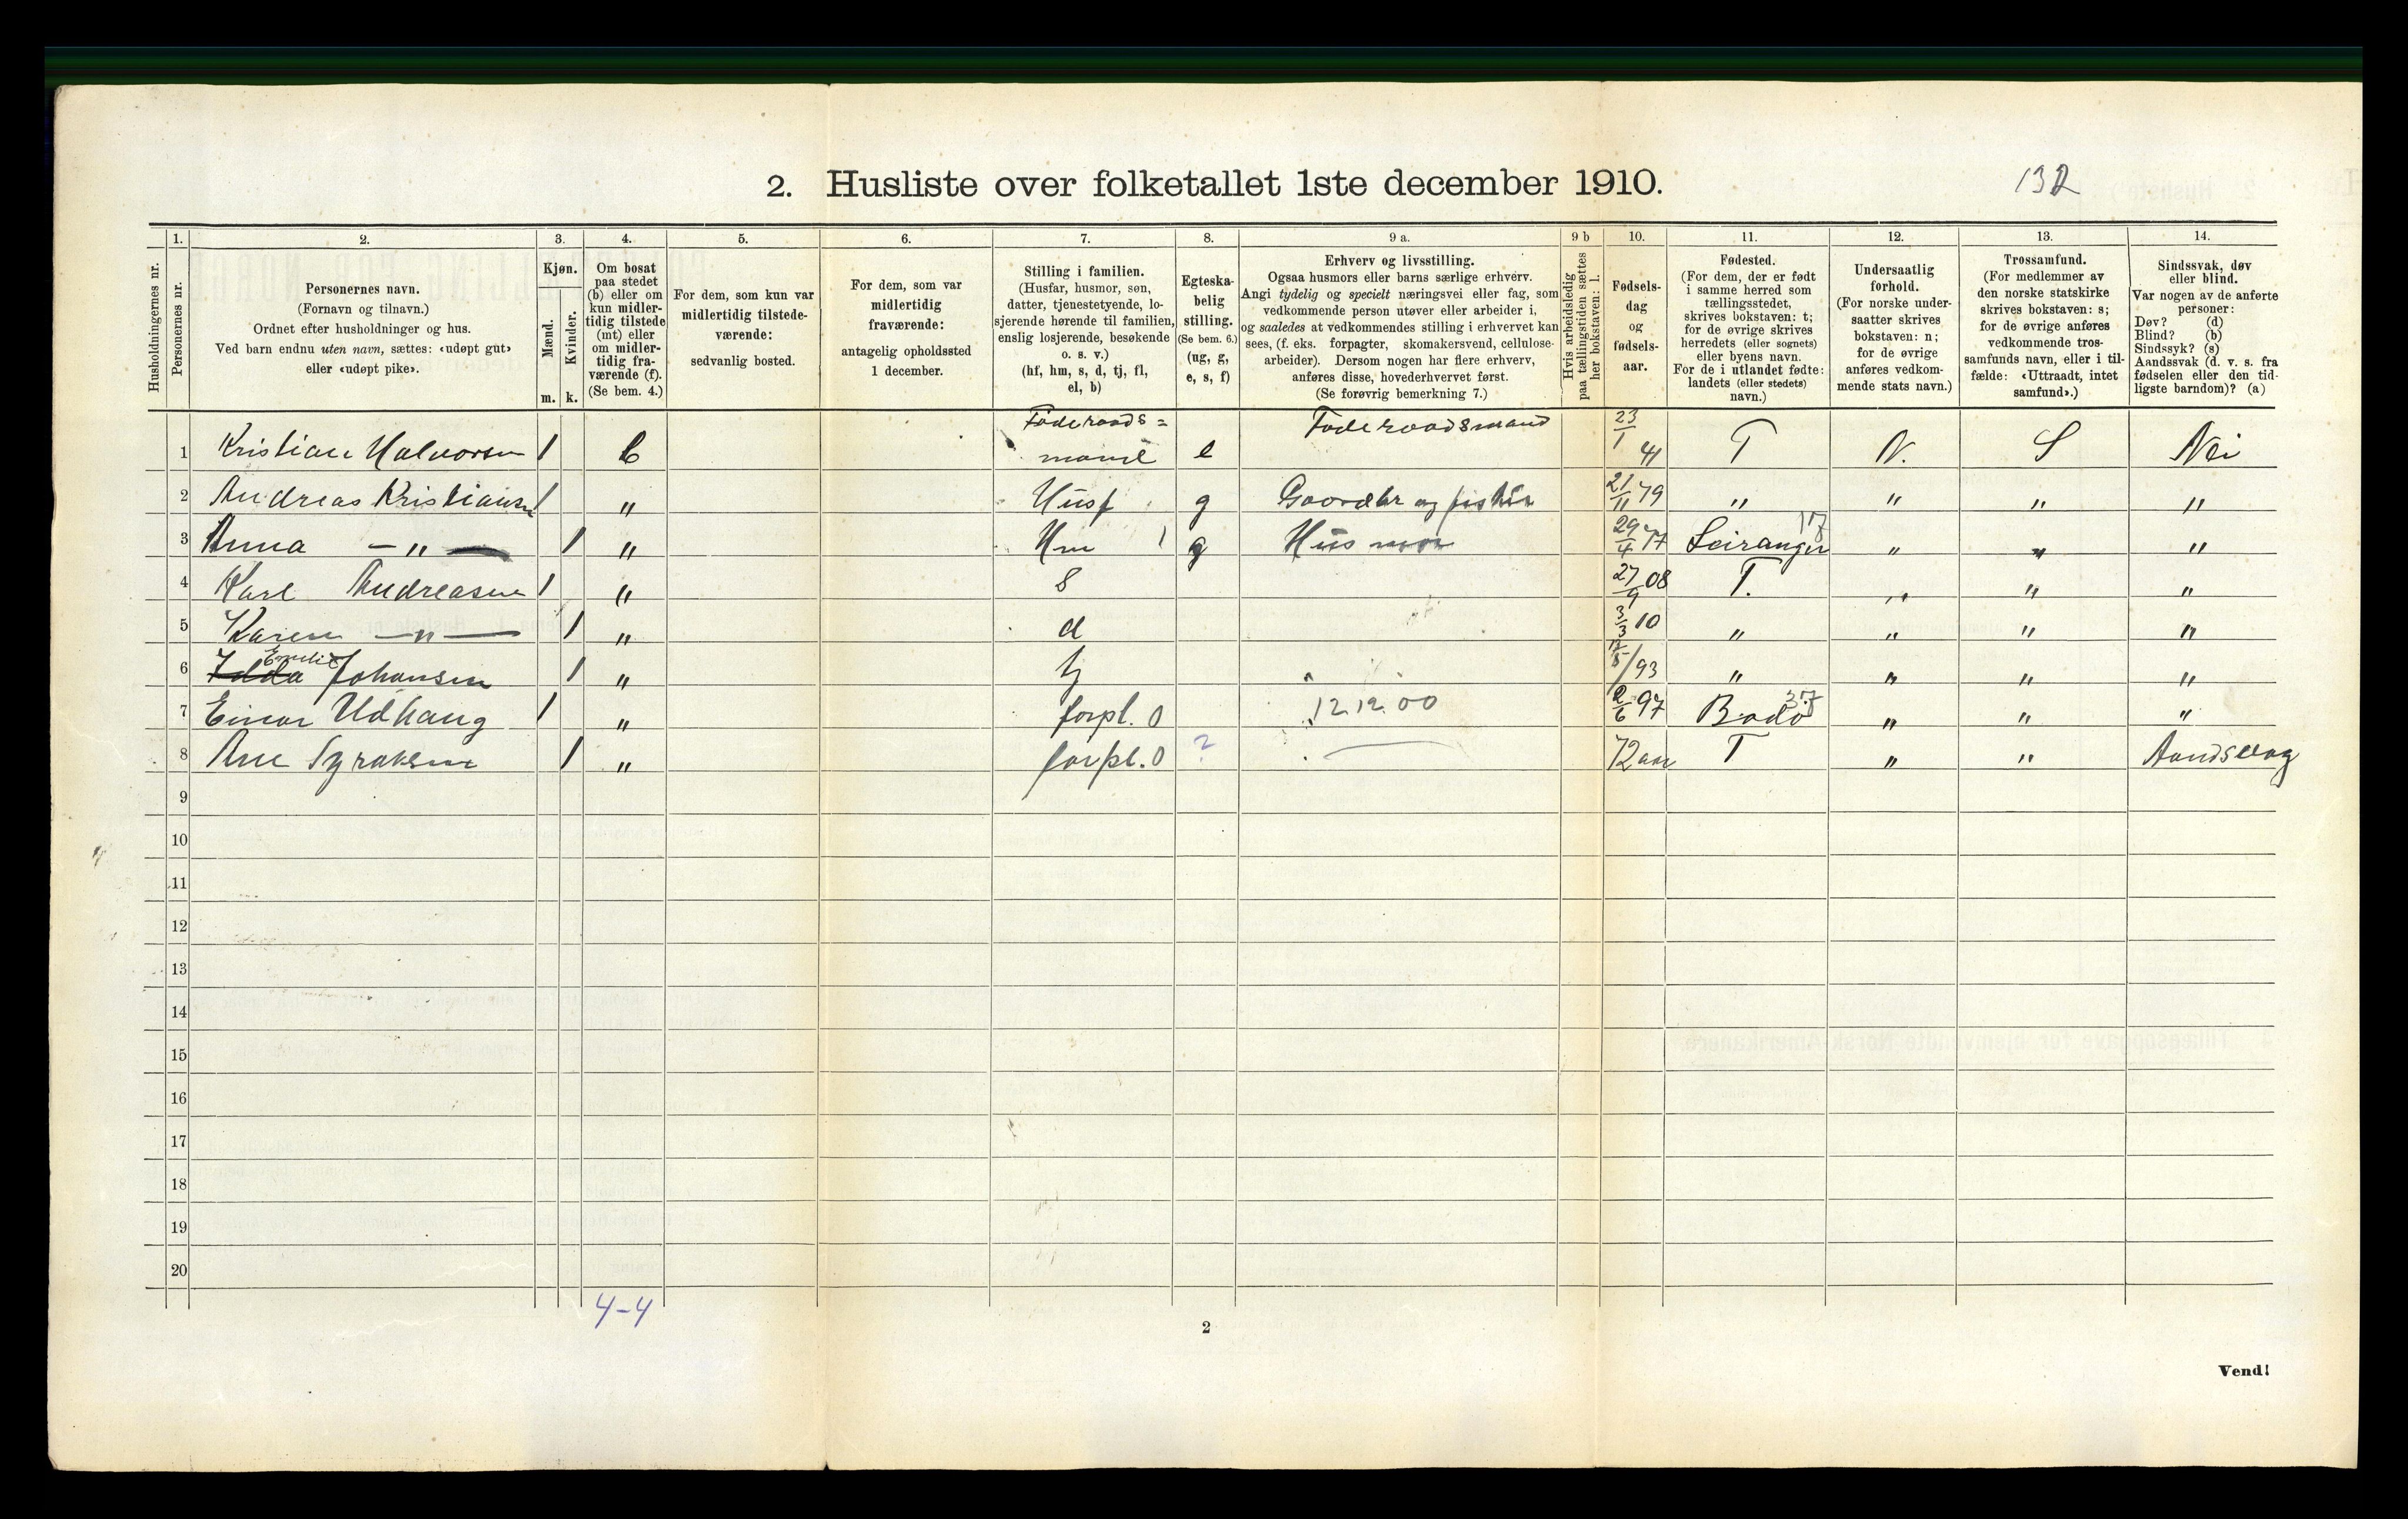 2. Husliste over folketallet 1ste december 1910.
132
Husholdningernes nr.
1.
Personernes nr.
2.
Personernes navn.
(Fornavn og tilnavn.)
Ordnet efter husholdninger og hus.
Ved barn endnu uten navn, sættes: «udøpt gut»
eller «udøpt pike».
3.
Kjøn.
Mænd.
Kvinder.
m. k.
4.
Om bosat
paa stedet
(b) eller om
kun midler-
tidig tilstede
(mt) eller
om midler-
tidig fra-
værende (f).
(Se bem. 4.)
5.
For dem, som kun var
midlertidig tilstede-
værende:
sedvanlig bosted.
6.
For dem, som var
midlertidig
fraværende:
antagelig opholdssted
1 december.
7.
Stilling i familien.
(Husfar, husmor, søn,
datter, tjenestetyende, lo-
sjerende hørende til familien,
enslig losjerende, besøkende
o. s. v.)
(hf, hm, s, d, tj, fl,
el, b)
8.
Egteska-
belig
stilling.
(Se bem. 6.)
(ug, g,
e, s, f)
9 a.
Erhverv og livsstilling.
Ogsaa husmors eller barns særlige erhverv.
Angi tydelig og specielt næringsvei eller fag, som
vedkommende person utøver eller arbeider i,
og saaledes at vedkommendes stilling i erhvervet kan
sees, (f. eks. forpagter, skomakersvend, cellulose-
arbeider). Dersom nogen har flere erhverv,
anføres disse, hovederhvervet først.
(Se forøvrig bemerkning 7.)
9 b
Hvis arbeidsledig
paa tællingstiden sættes
her bokstaven: l.
10.
Fødsels-
dag
og
fødsels-
aar.
11.
Fødested.
(For dem, der er født
i samme herred som
tællingsstedet,
skrives bokstaven: t;
for de øvrige skrives
herredets (eller sognets)
eller byens navn.
For de i utlandet fødte:
landets (eller stedets)
navn.)
12.
Undersaatlig
forhold.
(For norske under-
saatter skrives
bokstaven: n;
for de øvrige
anføres vedkom-
mende stats navn.)
13.
Trossamfund.
(For medlemmer av
den norske statskirke
skrives bokstaven: s;
for de øvrige anføres
vedkommende tros-
samfunds navn, eller i til-
fælde: «Uttraadt, intet
samfund».)
14.
Sindssvak, døv
eller blind.
Var nogen av de anførte
personer:
Døv? (d)
Blind? (b)
Sindssyk? (s)
Aandssvak (d. v. s. fra
fødselen eller den tid-
ligste barndom)? (a)
1 Kristian Halvorsen 1 b Föderaads=mand e Föderaadsmand 23/1 41 T N. S Nei
2 Andreas Kristiansen 1 " Husf g Gaardbr og fisker 21/11 79 " " " "
3 Anna —"— 1 " Hm 1 g Husmor 29/4 77 Leiranger 17 " " "
4 Karl Andreasen 1 " S 27/9 08 T. " " "
5 Karen —"— 1 " d 3/3 10 " " " "
6 Emelie Johansen 1 " tj /93 " " " "
7 Einar Udhaug 1 " forpl. 0 12.12.00 2/6 97 Bodö 37 " " "
8 Ane Syraksen 1 " forpl. 0 ? 72 aar T " " Aandsvag
9
10
11
12
13
14
15
16
17
18
19
20
4-4
2
Vend!